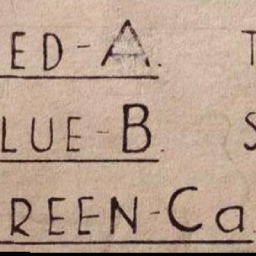 ED-A. T
LUE-B. S
REEN-Ca